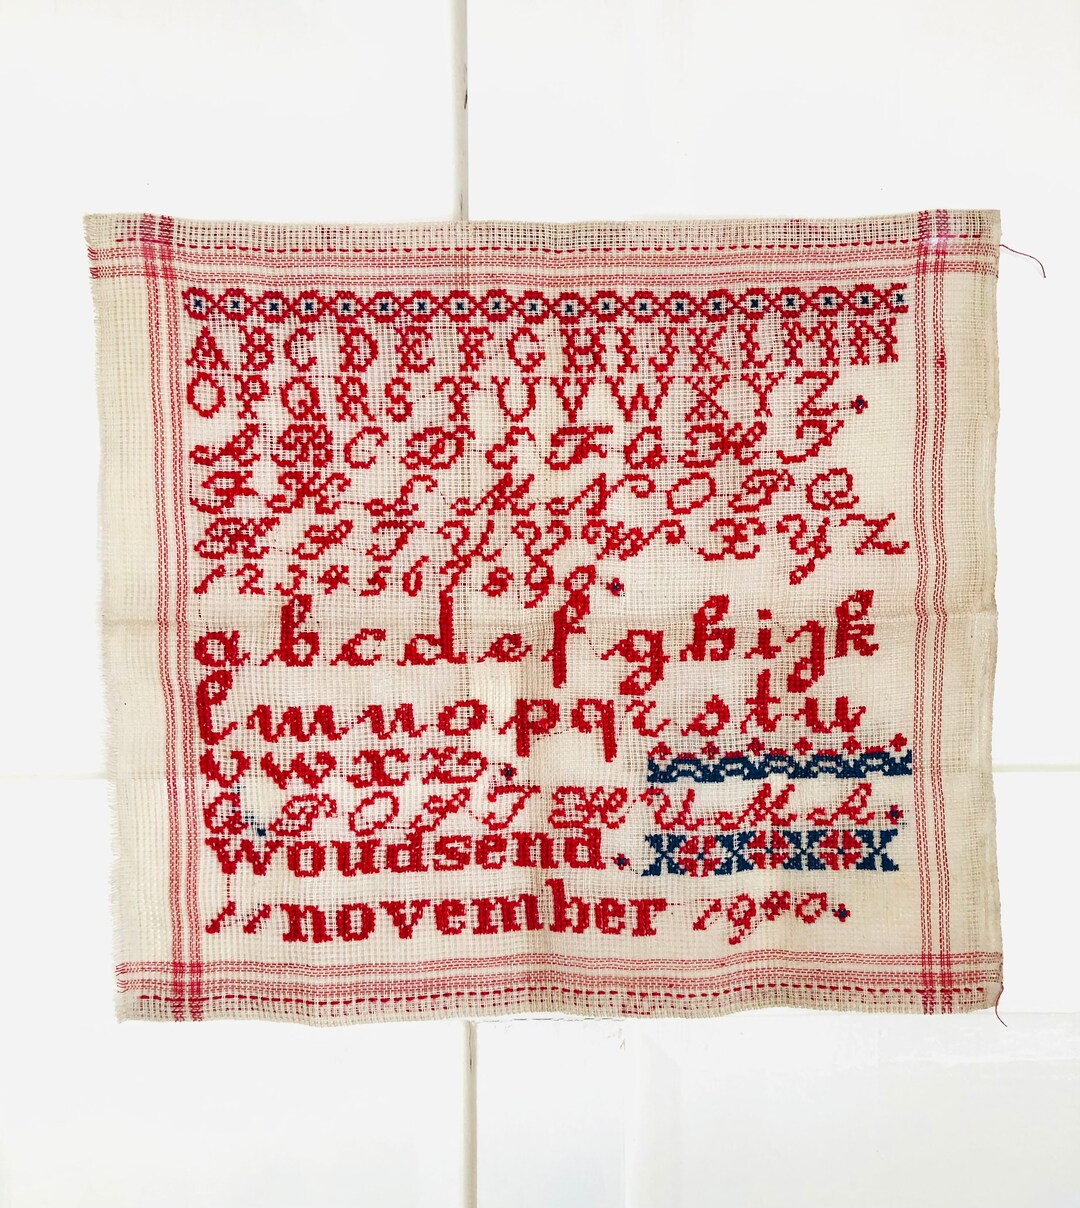 ABCDEFGHIJKLMN
OPQRSTUVWXYZ.
ABCDEFGHI
JKLMNOPQ
RSTUVWXYZ
1234567890.
abcdefghijk
lmnopqrstu
vwxz.
A. POSTHUMA.
woudsend.
11 november